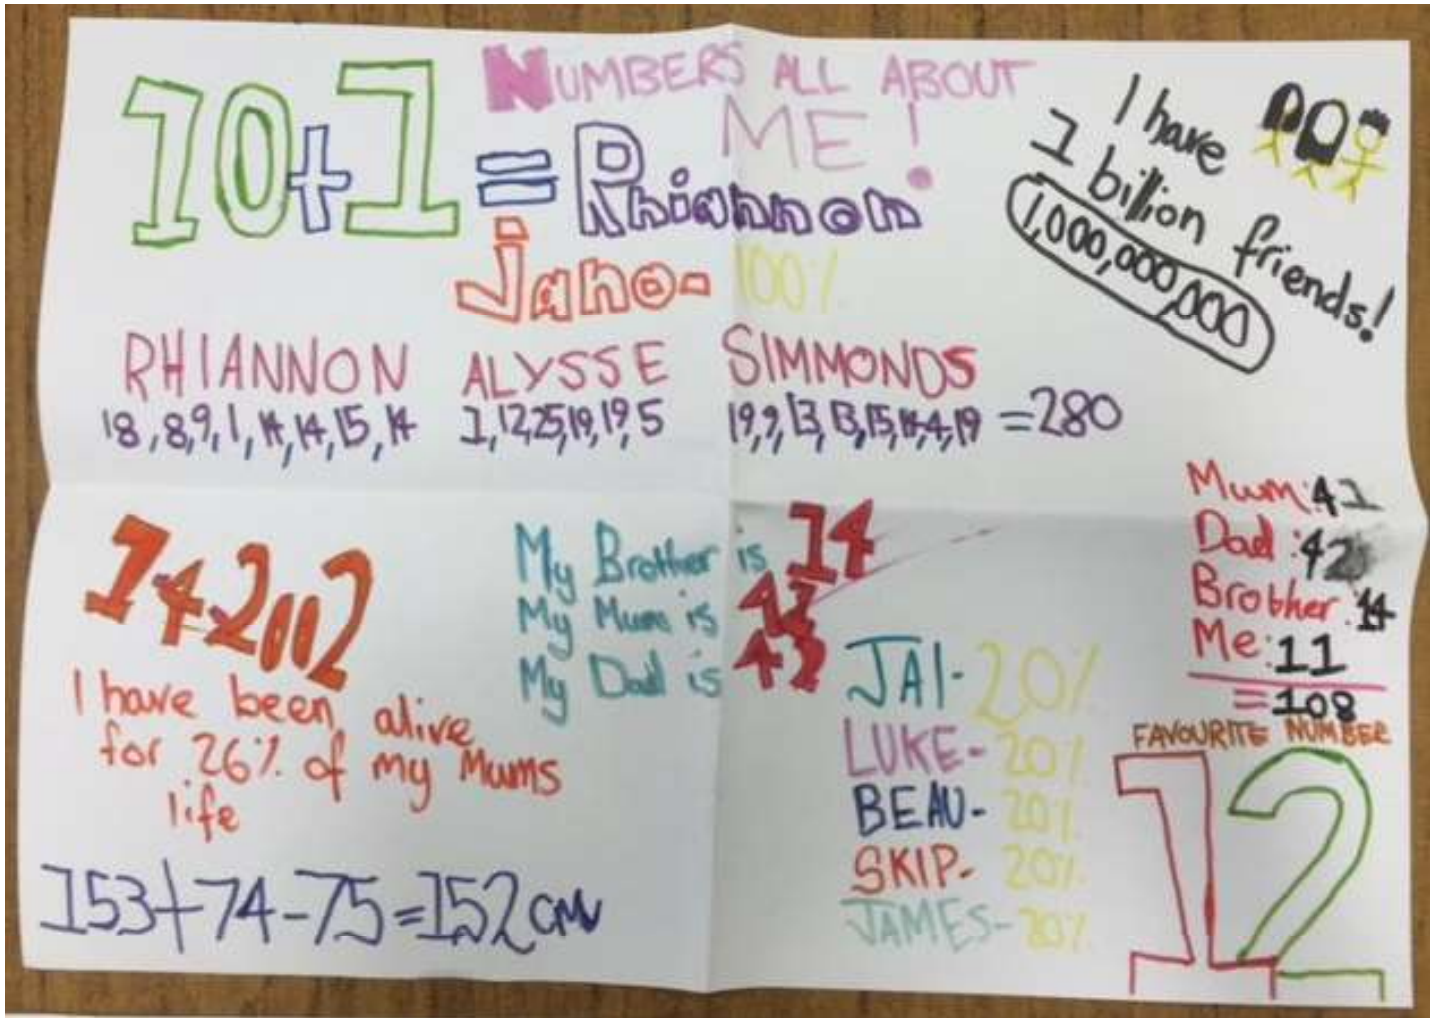 NUMBERS ALL ABOUT
ME!
10+1 = Rhiannon
Jano- 100%
I have
1 billion friends!
1,000,000,000
RHIANNON ALYSSE SIMMONDS
18,8,9,1,14,14,15,14 1,12,25,19,19,5 19,9,13,13,15,14,4,19 =280
14 2002
I have been alive
for 26% of my Mums
life
153+74-75=152cm
My Brother is 14
My Mum is
My Dad is
JAI- 20%
LUKE- 20%
BEAU- 20%
SKIP- 20%
JAMES- 20%
Mum: 41
Dad: 42
Brother: 14
Me: 11
=108
FAVOURITE NUMBER
12